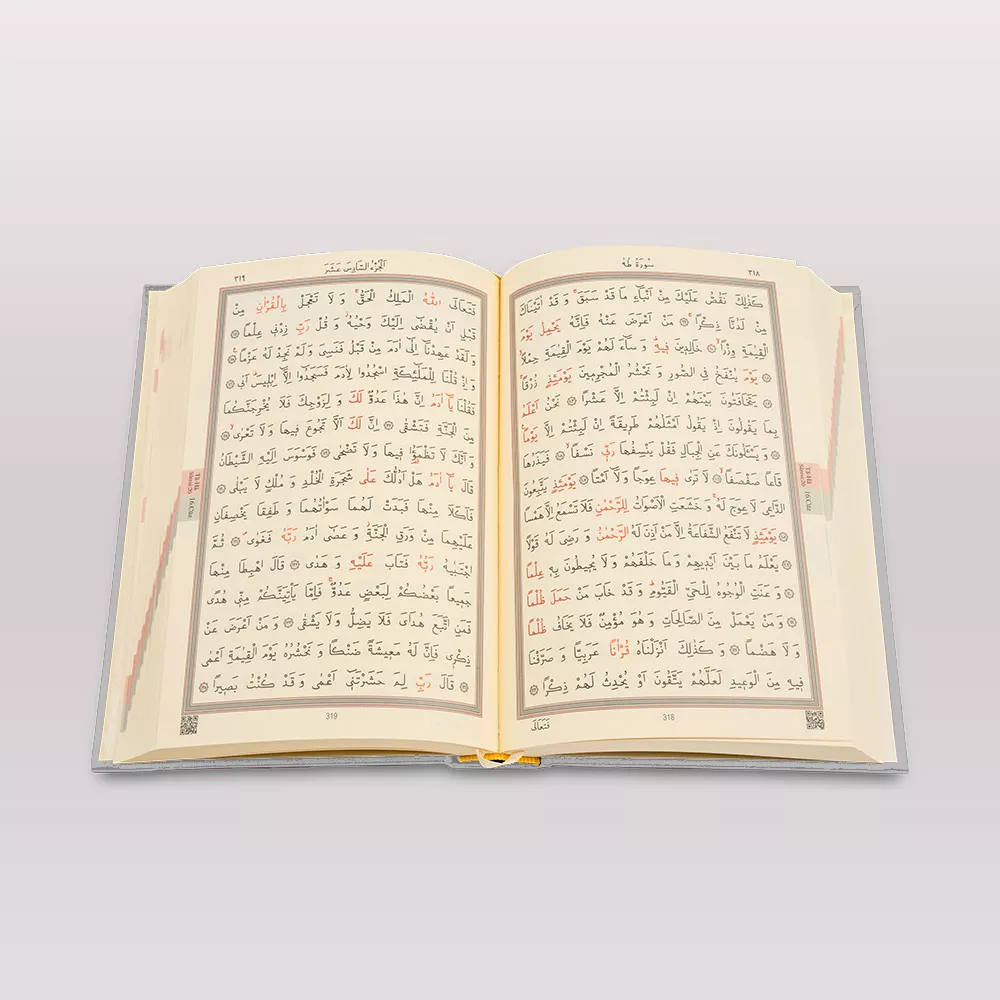 سُورَةُ طٰهٰ
٣١٨
كَذٰلِكَ نَقُصُّ عَلَيْكَ مِنْ اَنْبَٓاءِ مَا قَدْ سَبَقَۚ وَ قَدْ اٰتَيْنَاكَ
مِنْ لَدُنَّا ذِكْرًاۚ ۞ مَنْ اَعْرَضَ عَنْهُ فَاِنَّهُ يَحْمِلُ يَوْمَ
الْقِيٰمَةِ وِزْرًاۙ ۞ خَالِدِينَ فِيهِۜ وَ سَٓاءَ لَهُمْ يَوْمَ الْقِيٰمَةِ حِمْلًاۙ
۞ يَوْمَ يُنْفَخُ فِي الصُّورِ وَ نَحْشُرُ الْمُجْرِمِينَ يَوْمَئِذٍ زُرْقًاۚ
۞ يَتَخَافَتُونَ بَيْنَهُمْ اِنْ لَبِثْتُمْ اِلَّا عَشْرًا ۞ نَحْنُ اَعْلَمُ
بِمَا يَقُولُونَ اِذْ يَقُولُ اَمْثَلُهُمْ طَرِيقَةً اِنْ لَبِثْتُمْ اِلَّا يَوْمًا۟
۞ وَ يَسْـَٔلُونَكَ عَنِ الْجِبَالِ فَقُلْ يَنْسِفُهَا رَبِّي نَسْفًاۙ ۞ فَيَذَرُهَا
قَاعًا صَفْصَفًاۙ ۞ لَا تَرٰى فِيهَا عِوَجًا وَ لَٓا اَمْتًاۜ ۞ يَوْمَئِذٍ يَتَّبِعُونَ
الدَّاعِيَ لَا عِوَجَ لَهُۚ وَ خَشَعَتِ الْاَصْوَاتُ لِلرَّحْمٰنِ فَلَا تَسْمَعُ اِلَّا هَمْسًا
۞ يَوْمَئِذٍ لَا تَنْفَعُ الشَّفَاعَةُ اِلَّا مَنْ اَذِنَ لَهُ الرَّحْمٰنُ وَ رَضِيَ لَهُ قَوْلًا
۞ يَعْلَمُ مَا بَيْنَ اَيْدِيهِمْ وَ مَا خَلْفَهُمْ وَ لَا يُحِيطُونَ بِهِ عِلْمًا
۞ وَ عَنَتِ الْوُجُوهُ لِلْحَيِّ الْقَيُّومِۜ وَ قَدْ خَابَ مَنْ حَمَلَ ظُلْمًا
۞ وَ مَنْ يَعْمَلْ مِنَ الصَّالِحَاتِ وَ هُوَ مُؤْمِنٌ فَلَا يَخَافُ ظُلْمًا
وَ لَا هَضْمًا ۞ وَ كَذٰلِكَ اَنْزَلْنَاهُ قُرْاٰنًا عَرَبِيًّا وَ صَرَّفْنَا
فِيهِ مِنَ الْوَعِيدِ لَعَلَّهُمْ يَتَّقُونَ اَوْ يُحْدِثُ لَهُمْ ذِكْرًا ۞
فَتَعَالَى
318
Tâ-Hâ
Sûresi:20
16.Cüz
اَلْجُزْءُ السَّادِسَ عَشَرَ
٣١٩
فَتَعَالَى اللّٰهُ الْمَلِكُ الْحَقُّۚ وَ لَا تَعْجَلْ بِالْقُرْاٰنِ مِنْ
قَبْلِ اَنْ يُقْضٰٓى اِلَيْكَ وَحْيُهُۘ وَ قُلْ رَبِّ زِدْنِي عِلْمًا ۞
وَ لَقَدْ عَهِدْنَٓا اِلٰٓى اٰدَمَ مِنْ قَبْلُ فَنَسِيَ وَ لَمْ نَجِدْ لَهُ عَزْمًا۟ ۞
وَ اِذْ قُلْنَا لِلْمَلٰٓئِكَةِ اسْجُدُوا لِاٰدَمَ فَسَجَدُٓوا اِلَّٓا اِبْلِيسَۜ اَبٰى ۞
فَقُلْنَا يَٓا اٰدَمُ اِنَّ هٰذَا عَدُوٌّ لَكَ وَ لِزَوْجِكَ فَلَا يُخْرِجَنَّكُمَا
مِنَ الْجَنَّةِ فَتَشْقٰى ۞ اِنَّ لَكَ اَلَّا تَجُوعَ فِيهَا وَ لَا تَعْرٰىۙ ۞
وَ اَنَّكَ لَا تَظْمَؤُ۬ا فِيهَا وَ لَا تَضْحٰى ۞ فَوَسْوَسَ اِلَيْهِ الشَّيْطَانُ
قَالَ يَٓا اٰدَمُ هَلْ اَدُلُّكَ عَلٰى شَجَرَةِ الْخُلْدِ وَ مُلْكٍ لَا يَبْلٰى ۞
فَاَكَلَا مِنْهَا فَبَدَتْ لَهُمَا سَوْاٰتُهُمَا وَ طَفِقَا يَخْصِفَانِ
عَلَيْهِمَا مِنْ وَرَقِ الْجَنَّةِۘ وَ عَصٰٓى اٰدَمُ رَبَّهُ فَغَوٰىۖ ۞ ثُمَّ
اجْتَبٰيهُ رَبُّهُ فَتَابَ عَلَيْهِ وَ هَدٰى ۞ قَالَ اهْبِطَا مِنْهَا
جَمِيعًا بَعْضُكُمْ لِبَعْضٍ عَدُوٌّۚ فَاِمَّا يَأْتِيَنَّكُمْ مِنِّي هُدًى
فَمَنِ اتَّبَعَ هُدَايَ فَلَا يَضِلُّ وَ لَا يَشْقٰى ۞ وَ مَنْ اَعْرَضَ عَنْ
ذِكْرِي فَاِنَّ لَهُ مَعِيشَةً ضَنْكًا وَ نَحْشُرُهُ يَوْمَ الْقِيٰمَةِ اَعْمٰى
۞ قَالَ رَبِّ لِمَ حَشَرْتَنِٓي اَعْمٰى وَ قَدْ كُنْتُ بَصِيرًا ۞
319
Tâ-Hâ
Sûresi:20
16.Cüz